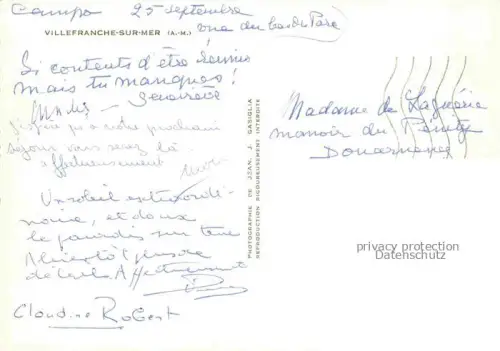 Campo 25 septembre
vue du bas du Parc
VILLEFRANCHE-SUR-MER (A.-M.)
Si contents d'être réunis
mais tu manques!
J'espère qu'a notre prochain
séjour vous serez là
affectueusement
Un soleil extraordi-
naire, et doux
le paradis sur terre
A bientôt
détails Affectueusement
Claudine Robert
PHOTOGRAPHIE DE JEAN J. GASIGLIA
REPRODUCTION RIGOUREUSEMENT INTERDITE
Madame de
manoir du
Douarnenez
privacy protection
Datenschutz